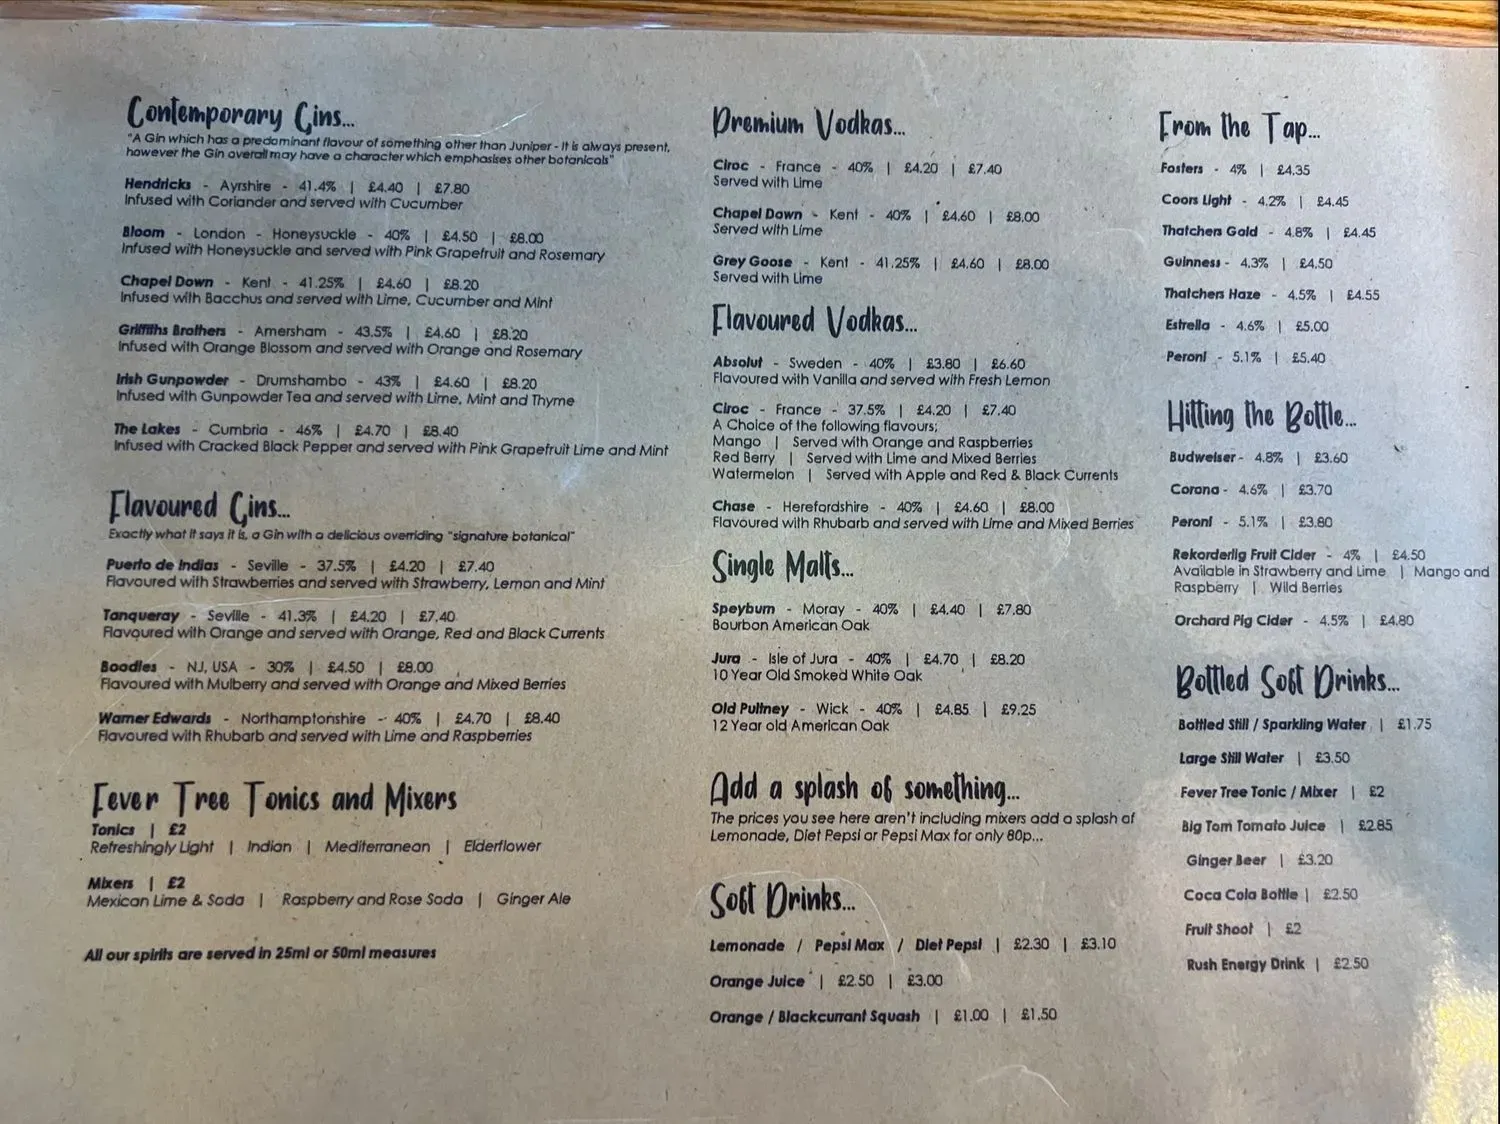 Contemporary Gins...
"A Gin which has a predominant flavour of something other than Juniper - It is always present,
however the Gin overall may have a character which emphasises other botanicals"
Hendricks - Ayrshire - 41.4% | £4.40 | £7.80
Infused with Coriander and served with Cucumber
Bloom - London - Honeysuckle - 40% | £4.50 | £8.00
Infused with Honeysuckle and served with Pink Grapefruit and Rosemary
Chapel Down - Kent - 41.25% | £4.60 | £8.20
Infused with Bacchus and served with Lime, Cucumber and Mint
Griffiths Brothers - Amersham - 43.5% | £4.60 | £8.20
Infused with Orange Blossom and served with Orange and Rosemary
Irish Gunpowder - Drumshambo - 43% | £4.60 | £8.20
Infused with Gunpowder Tea and served with Lime, Mint and Thyme
The Lakes - Cumbria - 46% | £4.70 | £8.40
Infused with Cracked Black Pepper and served with Pink Grapefruit Lime and Mint
Flavoured Gins...
Exactly what it says it is, a Gin with a delicious overriding "signature botanical"
Puerto de Indias - Seville - 37.5% | £4.20 | £7.40
Flavoured with Strawberries and served with Strawberry, Lemon and Mint
Tanqueray - Seville - 41.3% | £4.20 | £7.40
Flavoured with Orange and served with Orange, Red and Black Currents
Boodles - NJ, USA - 30% | £4.50 | £8.00
Flavoured with Mulberry and served with Orange and Mixed Berries
Warner Edwards - Northamptonshire - 40% | £4.70 | £8.40
Flavoured with Rhubarb and served with Lime and Raspberries
Fever Tree Tonics and Mixers
Tonics | £2
Refreshingly Light | Indian | Mediterranean | Elderflower
Mixers | £2
Mexican Lime & Soda | Raspberry and Rose Soda | Ginger Ale
All our spirits are served in 25ml or 50ml measures
Premium Vodkas...
Ciroc - France - 40% | £4.20 | £7.40
Served with Lime
Chapel Down - Kent - 40% | £4.60 | £8.00
Served with Lime
Grey Goose - Kent - 41.25% | £4.60 | £8.00
Served with Lime
Flavoured Vodkas...
Absolut - Sweden - 40% | £3.80 | £6.60
Flavoured with Vanilla and served with Fresh Lemon
Ciroc - France - 37.5% | £4.20 | £7.40
A Choice of the following flavours;
Mango | Served with Orange and Raspberries
Red Berry | Served with Lime and Mixed Berries
Watermelon | Served with Apple and Red & Black Currents
Chase - Herefordshire - 40% | £4.60 | £8.00
Flavoured with Rhubarb and served with Lime and Mixed Berries
Single Malts...
Speyburn - Moray - 40% | £4.40 | £7.80
Bourbon American Oak
Jura - Isle of Jura - 40% | £4.70 | £8.20
10 Year Old Smoked White Oak
Old Pultney - Wick - 40% | £4.85 | £9.25
12 Year old American Oak
Add a splash of something...
The prices you see here aren't including mixers add a splash of
Lemonade, Diet Pepsi or Pepsi Max for only 80p...
Soft Drinks...
Lemonade / Pepsi Max / Diet Pepsi | £2.30 | £3.10
Orange Juice | £2.50 | £3.00
Orange / Blackcurrant Squash | £1.00 | £1.50
From the Tap...
Fosters - 4% | £4.35
Coors Light - 4.2% | £4.45
Thatchers Gold - 4.8% | £4.45
Guinness - 4.3% | £4.50
Thatchers Haze - 4.5% | £4.55
Estrella - 4.6% | £5.00
Peroni - 5.1% | £5.40
Hitting the Bottle...
Budweiser - 4.8% | £3.60
Corona - 4.6% | £3.70
Peroni - 5.1% | £3.80
Rekorderlig Fruit Cider - 4% | £4.50
Available in Strawberry and Lime | Mango and
Raspberry | Wild Berries
Orchard Pig Cider - 4.5% | £4.80
Bottled Soft Drinks...
Bottled Still / Sparkling Water | £1.75
Large Still Water | £3.50
Fever Tree Tonic / Mixer | £2
Big Tom Tomato Juice | £2.85
Ginger Beer | £3.20
Coca Cola Bottle | £2.50
Fruit Shoot | £2
Rush Energy Drink | £2.50